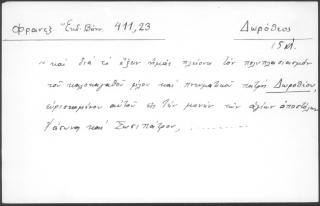 Φραντζ Ἔκδ. Βόνν. 411,23 Δωρόθεος
15 Μ.
"καὶ διὰ τὸ ἔχειν ἡμᾶς πλείονα τὸν πολυπλασιασμὸν
τοῦ καλοκαγαθοῦ φίλου καὶ πνευματικοῦ πατρὸς Δωροθέου,
εὑρισκομένου αὐτοῦ εἰς τὴν μονὴν τῶν ἁγίων ἀποστόλων
Ἰάσωνος καὶ Σωσιπάτρου, .........